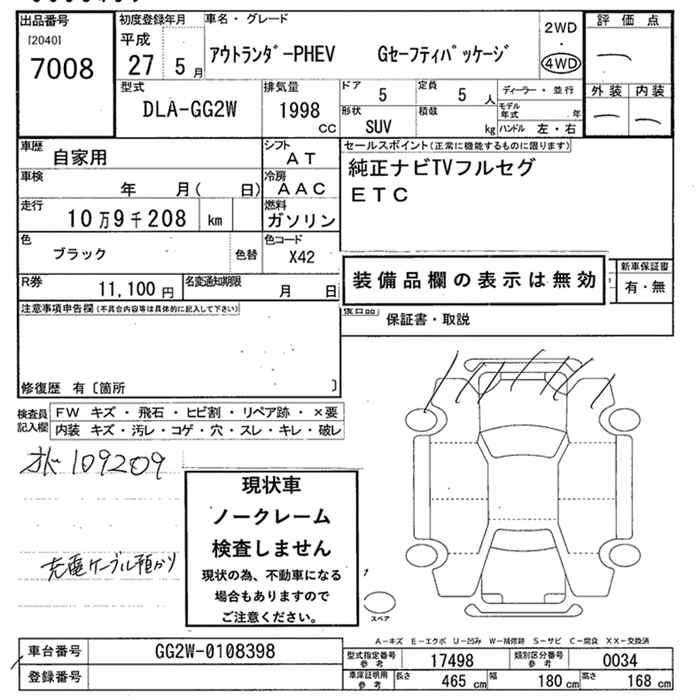 出品番号
[2040]
7008
初度登録年月
平成
27 5月
車名・グレード
アウトランダ゛-PHEV Gセーフティパッケージ
2WD
・
4WD
評価点
外装 内装
型式
DLA-GG2W
排気量
1998
CC
ドア
5
定員
5人
ディーラー・並行
形状
SUV
積載
kg
モデル年式 年
ハンドル 左・右
車歴
自家用
シフト
AT
セールスポイント(正常に機能するものに限ります)
純正ナビTVフルセグ
ETC
車検
年 月( 日)
冷房
AAC
走行
10万9千208 km
燃料
ガソリン
色
ブラック
色替
色コード
X42
装備品欄の表示は無効
新車保証書
有・無
R券
11,100円
名変通知期限
月 日
保証書・取説
注意事項申告欄(不具合内容等は具体的に記入して下さい)
修復歴 有〔箇所 〕
検査員記入欄
FW キズ・飛石・ヒビ割・リペア跡・×要
内装 キズ・汚レ・コゲ・穴・スレ・キレ・破レ
109209
充電ケーブル預かり
現状車
ノークレーム
検査しません
現状の為、不動車になる
場合もありますので
ご注意ください。
スペア
A-キズ E-エクボ U-凹み W-補修跡 S-サビ C-腐食 XX-交換済
車台番号
GG2W-0108398
登録番号
型式指定番号
参考
17498
類別区分番号
参考
0034
車庫証明用
参考
長さ
465 cm
幅
180 cm
高さ
168 cm